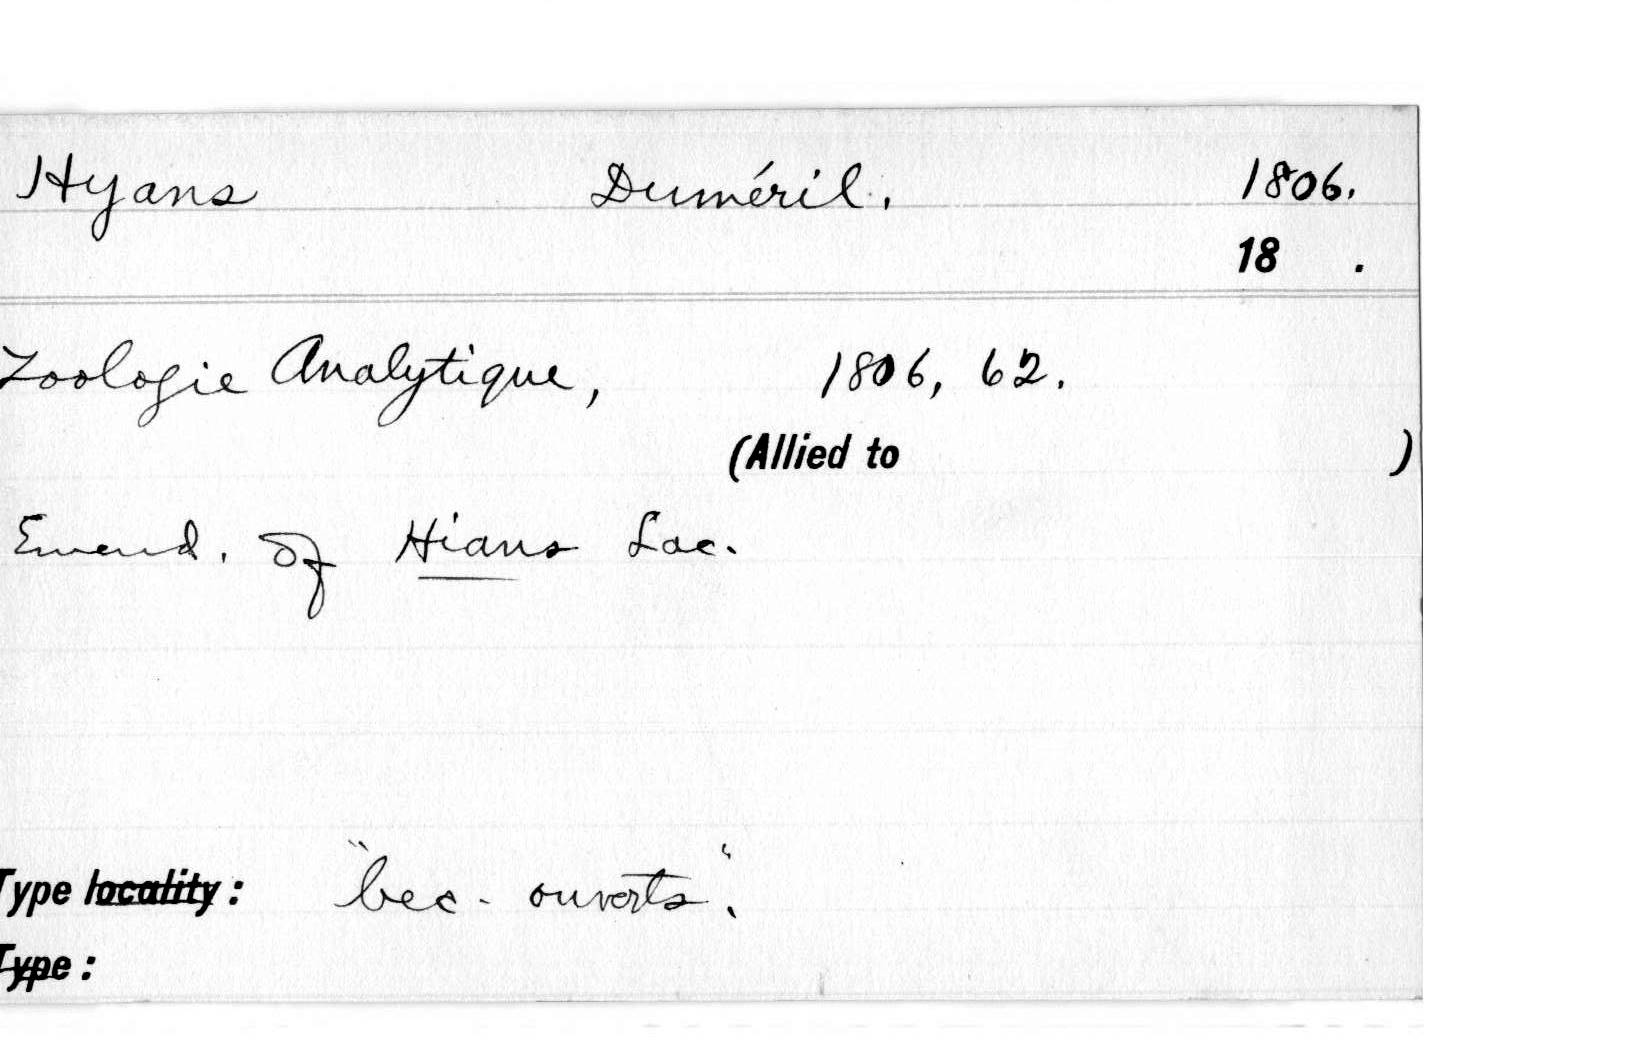 Hyans Duméril. 1806.
18 .
Zoologie Analytique, 1806, 62.
(Allied to )
Emend. of Hians Lac.
Type locality: "bec-ouverts".
Type: